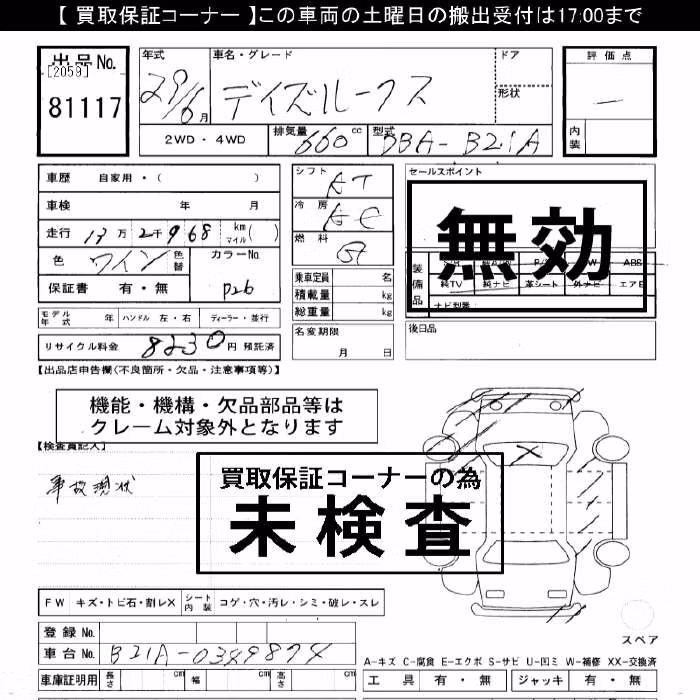 【 買取保証コーナー 】この車両の土曜日の搬出受付は17:00まで
出品No.
[2059]
81117
年式 車名・グレード ドア
29/6月 デイズルークス 形状
2WD・4WD 排気量 660cc 型式 DBA-B21A
評価点
—
内装
車歴 自家用・( )
車検 年 月
走行 13万2千968 km マイル ( )
色 ワイン 色替 カラーNo
保証書 有・無 P26
シフト AT
冷房 AC
燃料 G
乗車定員 名
積載量 kg
総重量 kg
名変期限
月 日
セールスポイント
無効
装備品
S/R 純A/W P/S P/W ABS
純TV 純ナビ 革シート 外ナビ エアB
ナビ型番
後日品
モデル年式 年 ハンドル 左・右 ディーラー・並行
リサイクル料金 8230 円 預託済
【出品店申告欄(不良箇所・欠品・注意事項等)】
機能・機構・欠品部品等は
クレーム対象外となります
【検査員記入】
事故現状
買取保証コーナーの為
未検査
FW キズ・トビ石・割レX シート内装 コゲ・穴・汚レ・シミ・破レ・スレ
スペア
登録No.
車台No. B21A-0349874
A-キズ C-腐食 E-エクボ S-サビ U-凹ミ W-補修 XX-交換済
車庫証明用 長さ cm 幅 cm 高さ cm
工具 有・無 ジャッキ 有・無